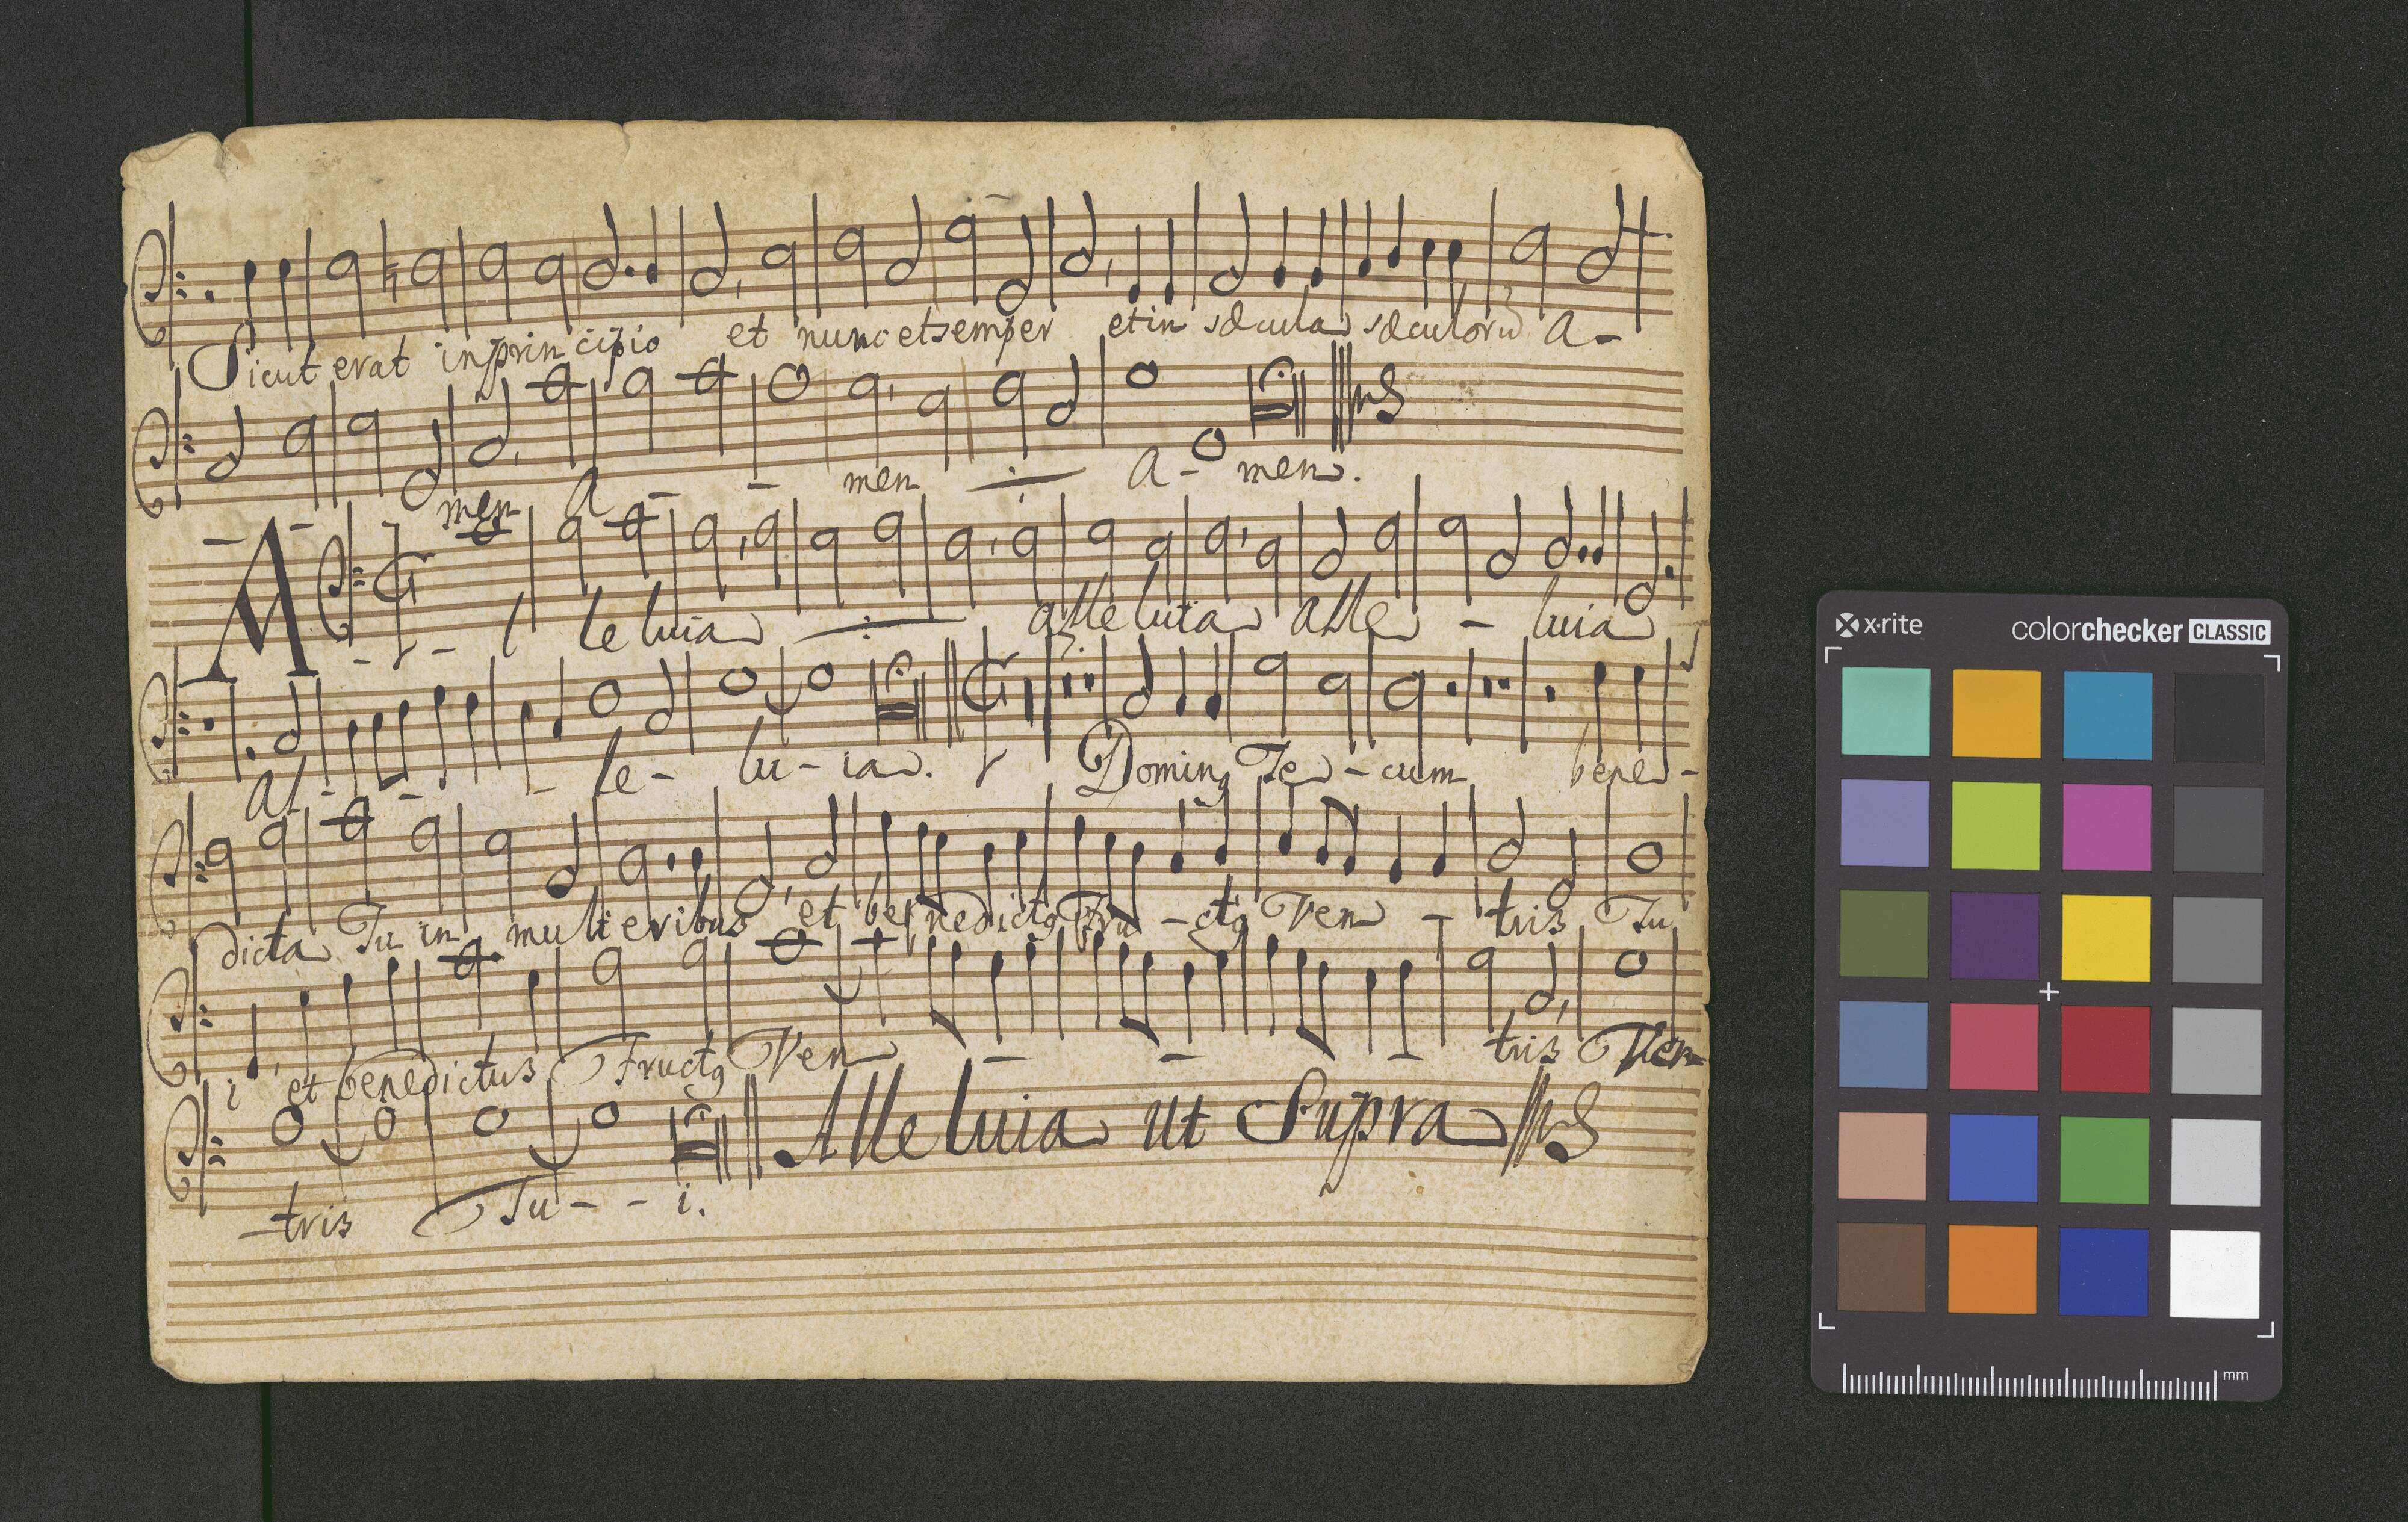 Sicut erat in principio et nunc et semper et in sæcula sæculorū A-
men A - - men A-men.
Al - - - le luia alleluia alle - luia
Al - - - le - lu - ia. Dominꝰ Te - cum bene -
dicta Tu in mulieribus et benedictꝰ Fru - ctꝰ Ven - tris Tu
i et benedictus Fructꝰ Ven - - - tris Ven
-tris Tu - - i. Alleluia ut Supra
x·rite colorchecker CLASSIC
mm